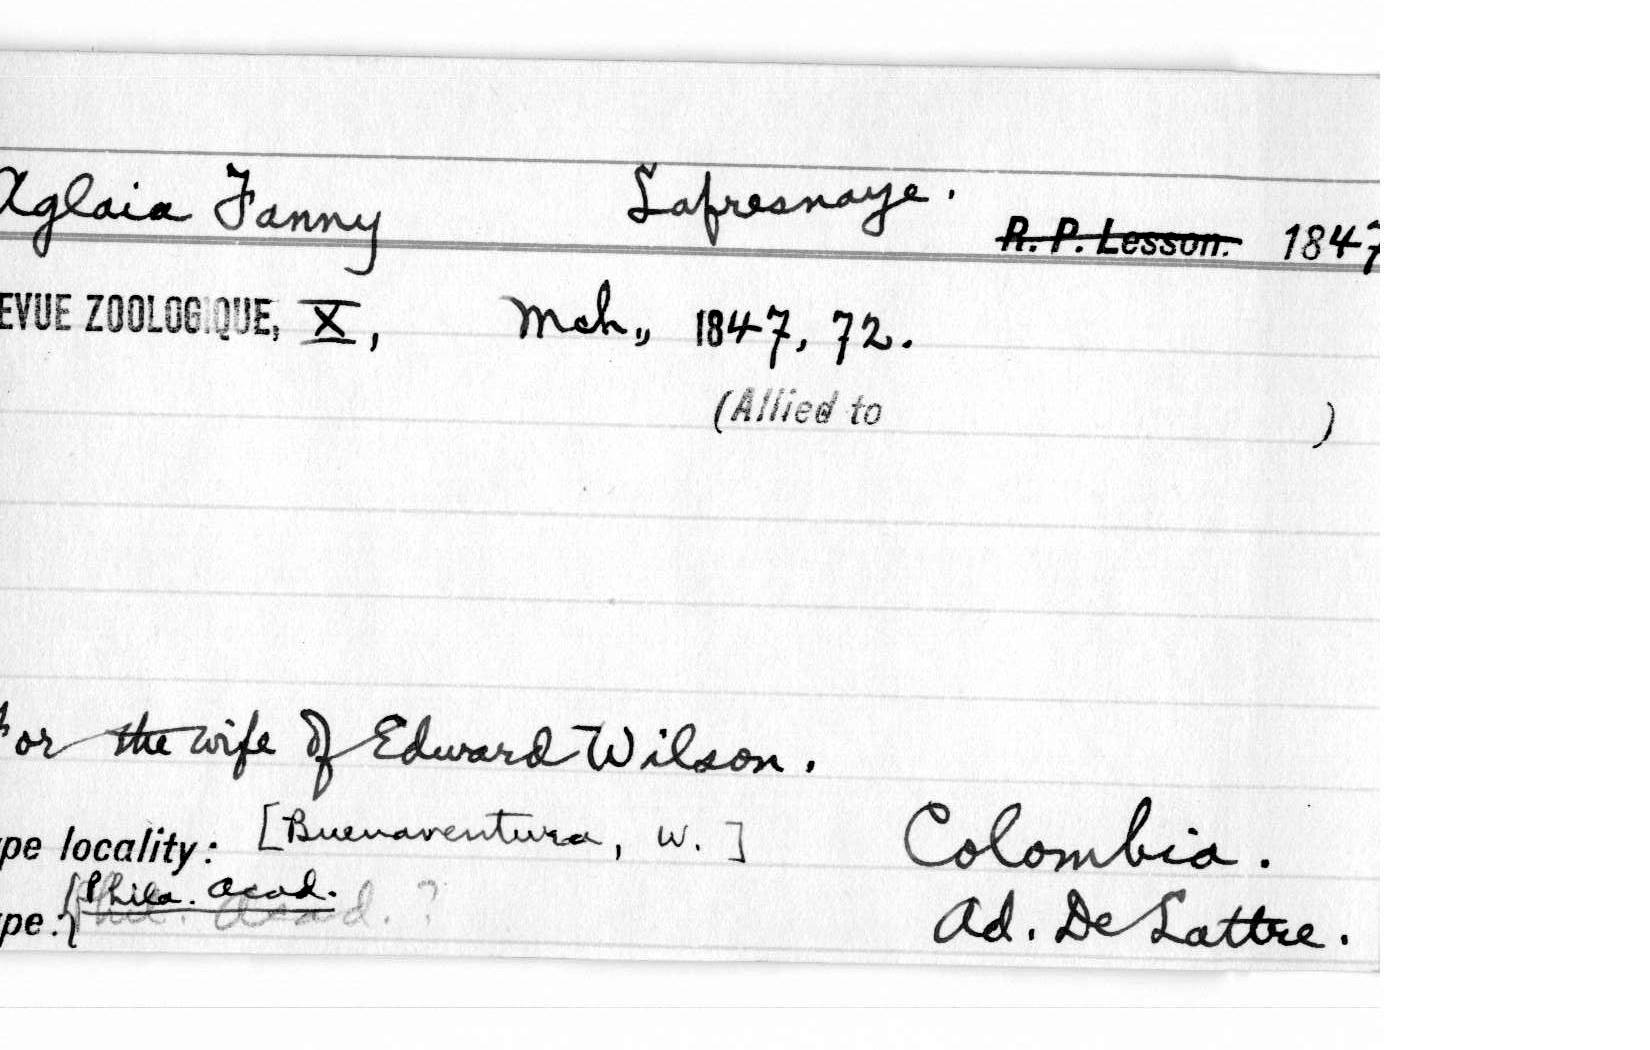 Aglaia Fanny Lafresnaye.
R. P. Lesson. 1847
EVUE ZOOLOGIQUE, X, Mch., 1847, 72.
(Allied to )
For the wife of Edward Wilson.
ype locality: [Buenaventura, W.] Colombia.
Phila. Acad.
ype. Phil. Acad. ? Ad. De Lattre.